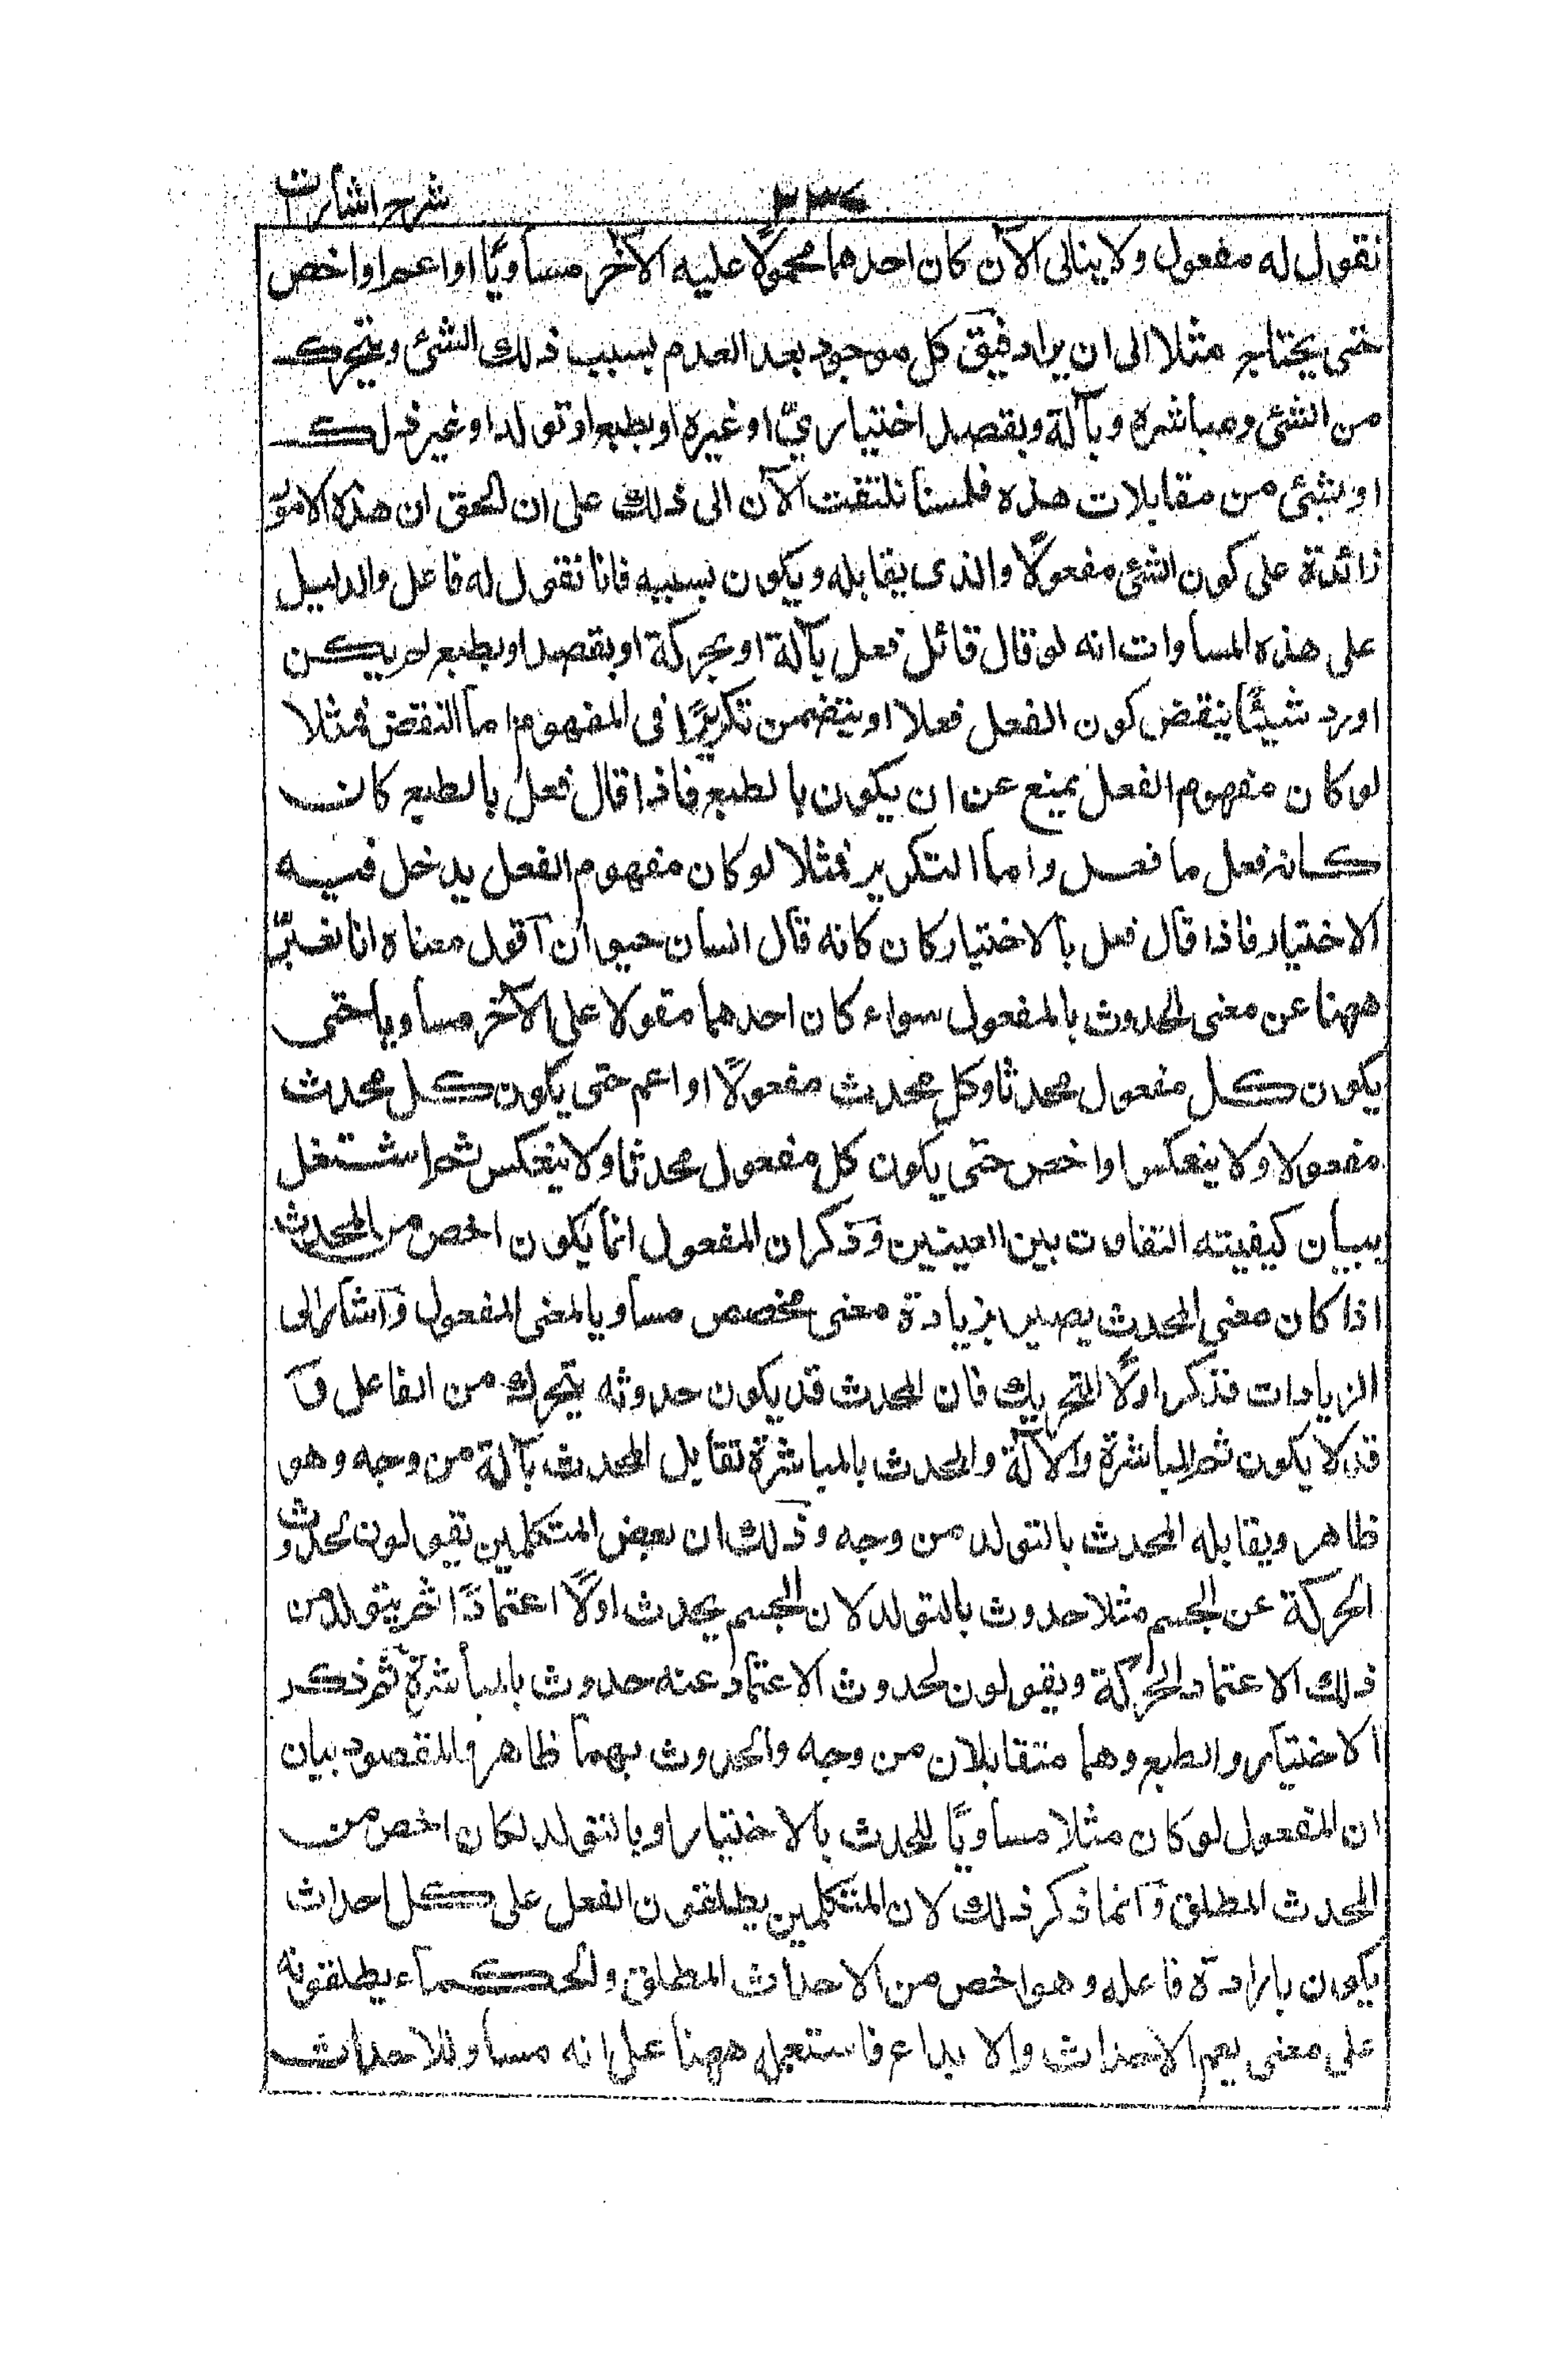 شرح اشارات
نقول له مفعول ولا ينالى الآن كان احدهما محمولًا عليه الآخر مساويًا او اعم او اخص
حتى يحتاج مثلا الى ان يراد فيق كل موجود بعد العدم بسبب ذلك الشئ و يتحرك
من الشئ ومباشرة وبآلة وبقصد اختياريّ او غيره او بطبع او تولد او غير ذلك
او بشئ من مقابلات هذه فلسنا نلتفت الآن الى ذلك على ان الحق ان هذه الامور
زائدة على كون الشئ مفعولًا والذى يقابله ويكون بسببه فانا نقول له فاعل والدليل
على هذه المساوات انه لو قال قائل فعل بآلة او بحركة او بقصد او بطبع لم يكن
اورد شيئًا ينقض كون الفعل فعلا او يتضمن تكريرًا فى المفهوم اما النقض فمثلا
لو كان مفهوم الفعل يمنع عن ان يكون بالطبع فاذا قال فعل بالطبع كان
كانه فعل ما فعل واما التكرير فمثلا لو كان مفهوم الفعل يدخل فيه
الاختيار فاذا قال فعل بالاختيار كان كانه قال انسان حيوان آقول معناه انا نعبّر
ههنا عن معنى الحدوث بالمفعول سواء كان احدهما مقولا على الآخر مساويا حتى
يكون كل مفعول محدثا وكل محدث مفعولًا او اعم حتى يكون كل محدث
مفعولا ولا ينعكس او اخص حتى يكون كل مفعول محدثا ولا ينعكس ثم اشتغل
ببيان كيفيته التفاوت بين المعنيين وذكر ان المفعول انما يكون اخص من المحدث
اذا كان معنى المحدث يصير بزيادة معنى مخصص مساويا لمعنى المفعول وآشار الى
الزيادات فذكر اولًا التحريك فان المحدث قد يكون حدوثه بتحرك من الفاعل و
قد لا يكون ثم المباشرة والآلة والمحدث بالمباشرة تقابل المحدث بآلة من وجه وهو
ظاهر ويقابله المحدث بالتولد من وجه وذلك ان بعض المتكلمين يقولون لحدوث
الحركة عن الجسم مثلا حدوث بالتولد لان الجسم يحدث اولًا اعتمادًا ثم يتولد من
ذلك الاعتماد الحركة ويقولون لحدوث الاعتماد عنه حدوث بالمباشرة ثم ذكر
الاختيار والطبع وهما متقابلان من وجه والحدوث بهما ظاهر والمقصود بيان
ان المفعول لو كان مثلا مساويًا للمحدث بالاختيار او بالتولد لكان اخص من
المحدث المطلق وآنما ذكر ذلك لان المتكلمين يطلقون الفعل على كل احداث
يكون بارادة فاعله وهو اخص من الاحداث المطلق والحكماء يطلقونه
على معنى يعم الاحداث والابداع فاستعمله ههنا على انه مساو للاحداث